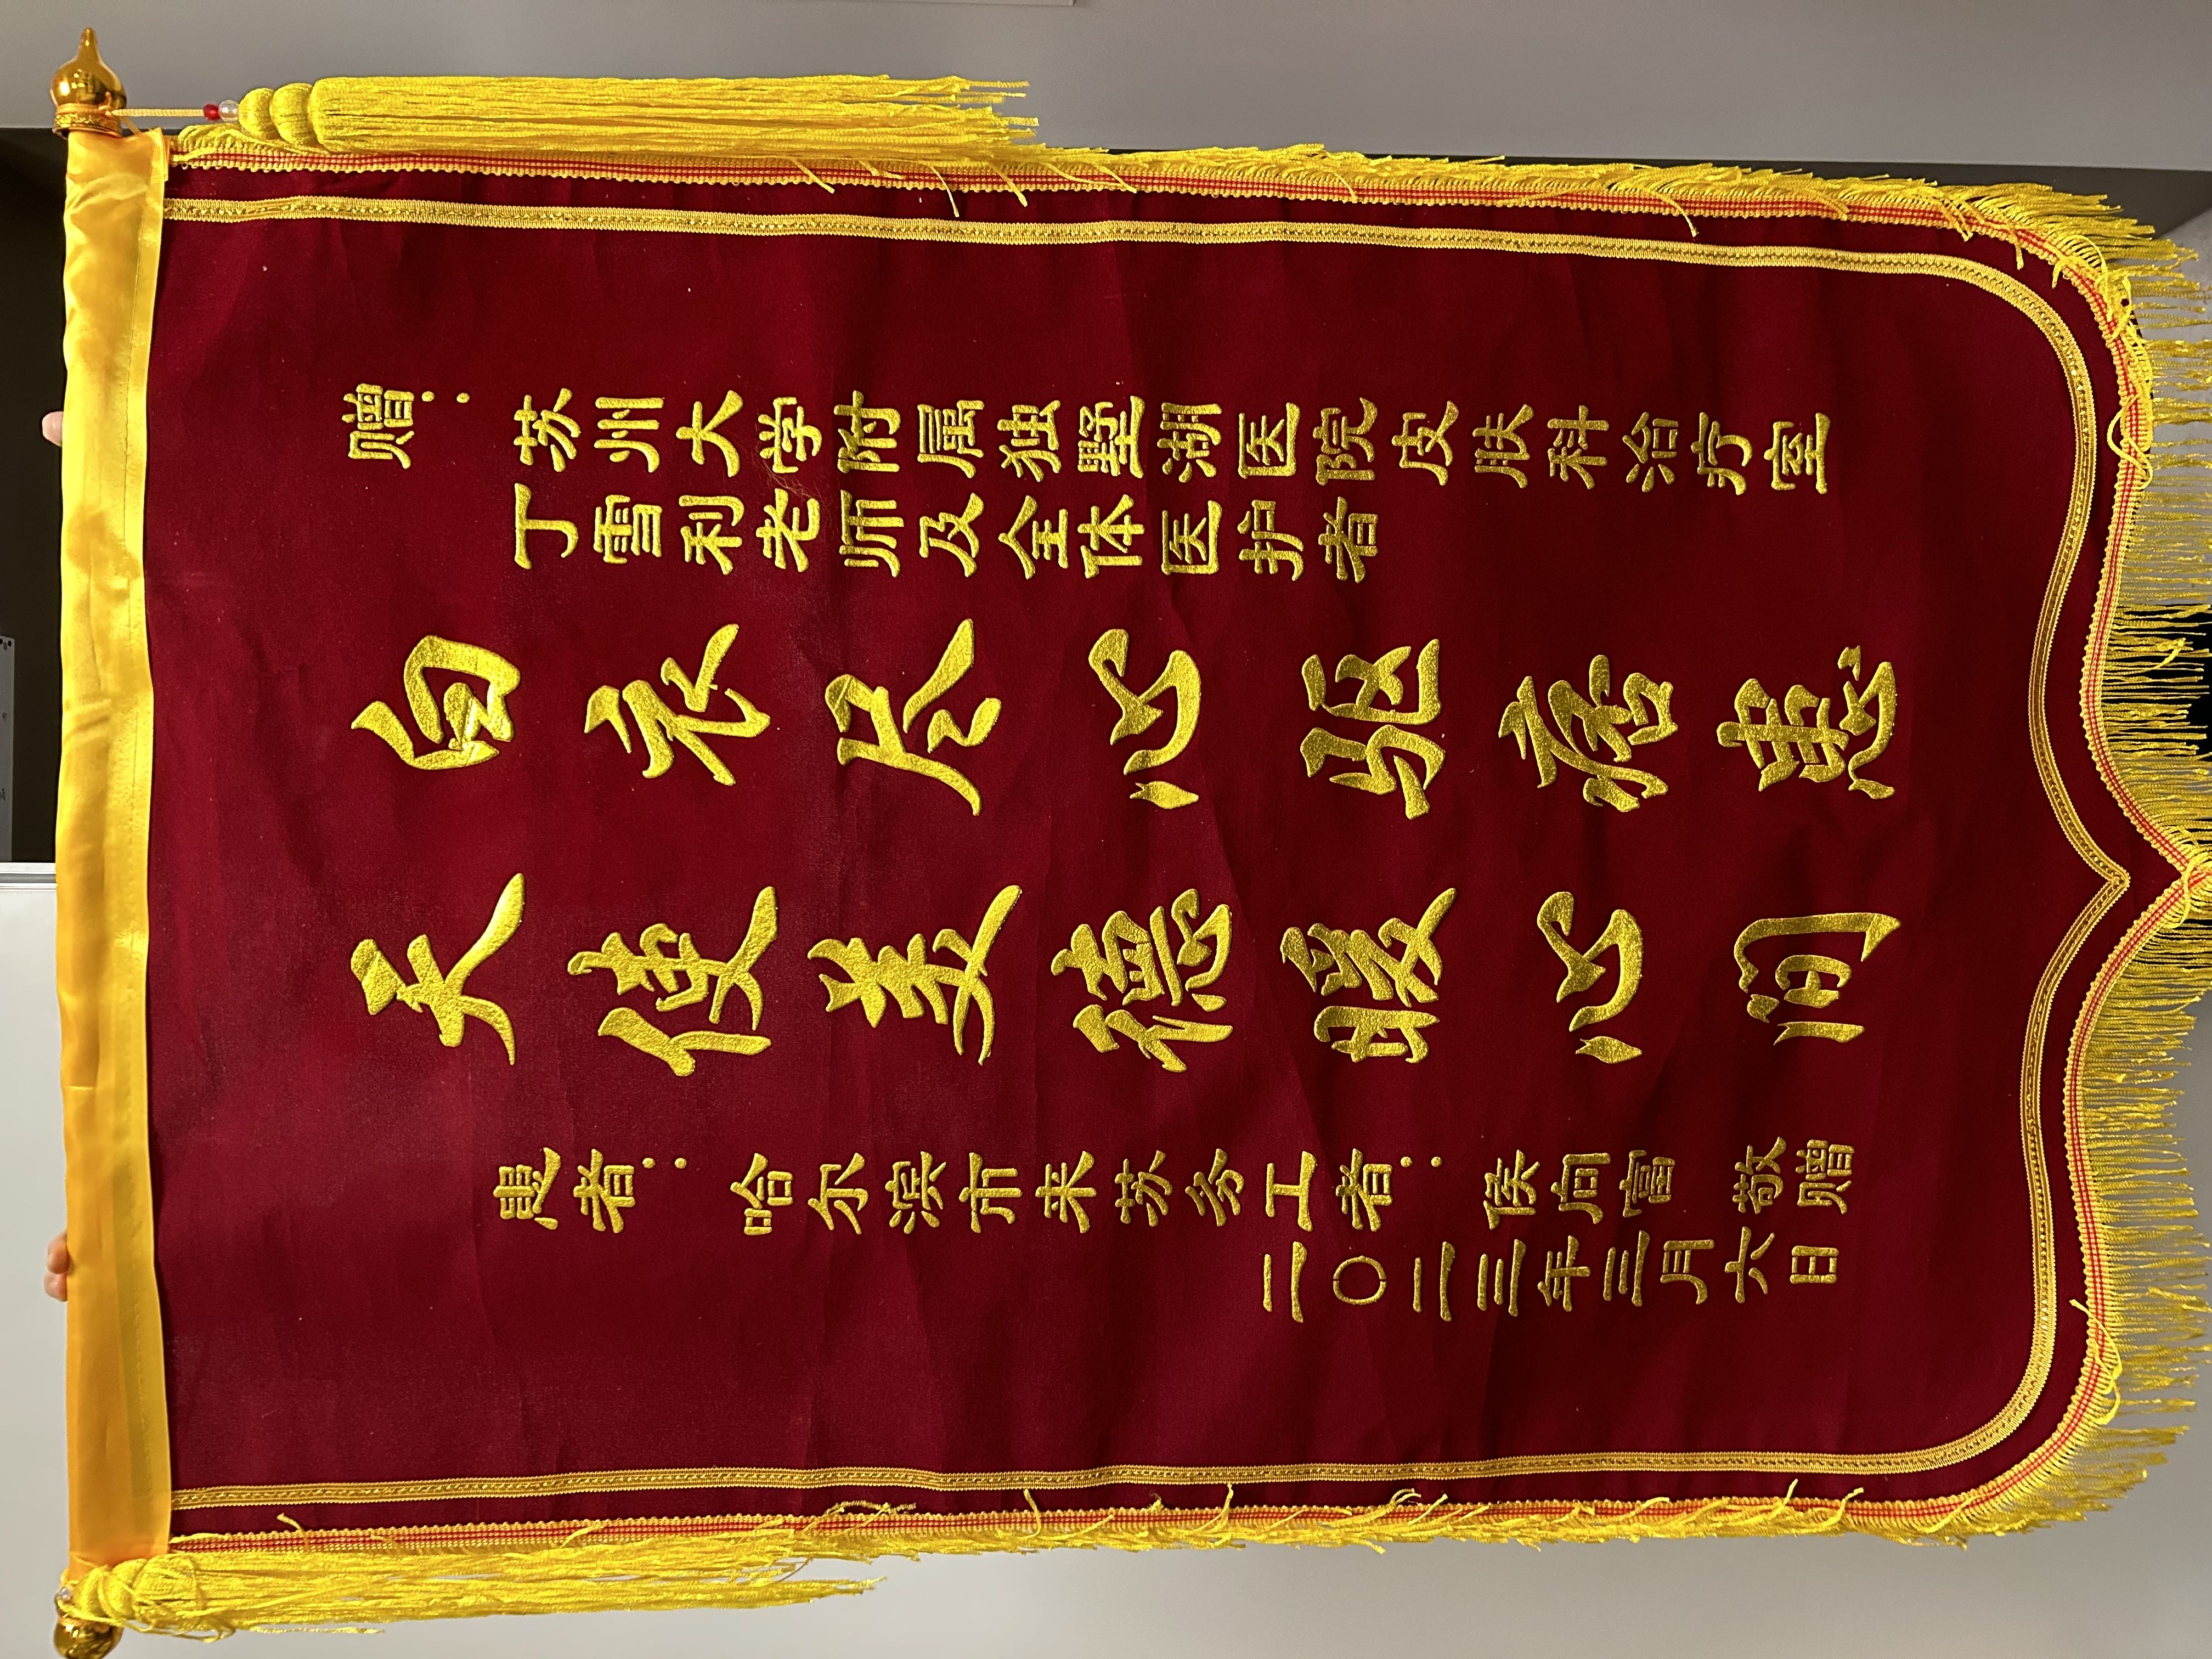 赠：苏州大学附属独墅湖医院皮肤科治疗室
丁雪利老师及全体医护者
白衣尽心驱癌患
天使美德暖心间
患者：哈尔滨市来苏务工者：侯向富 敬赠
二〇二三年三月六日